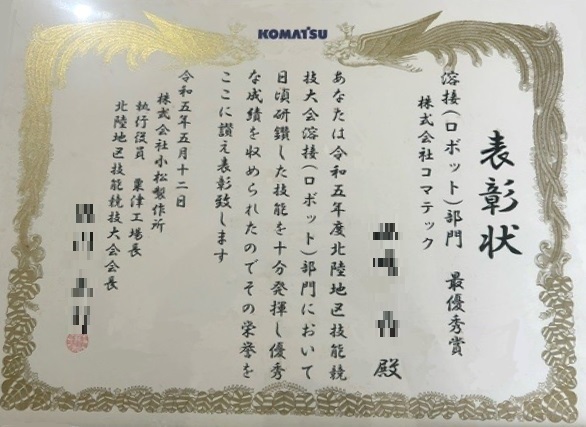 KOMATSU
表彰状
溶接(ロボット)部門 最優秀賞
株式会社コマテック
殿
あなたは令和五年度北陸地区技能競
技大会溶接(ロボット)部門において
日頃研鑽した技能を十分発揮し優秀
な成績を収められたのでその栄誉を
ここに讃え表彰致します
令和五年五月十二日
株式会社小松製作所
執行役員 粟津工場長
北陸地区技能競技大会会長